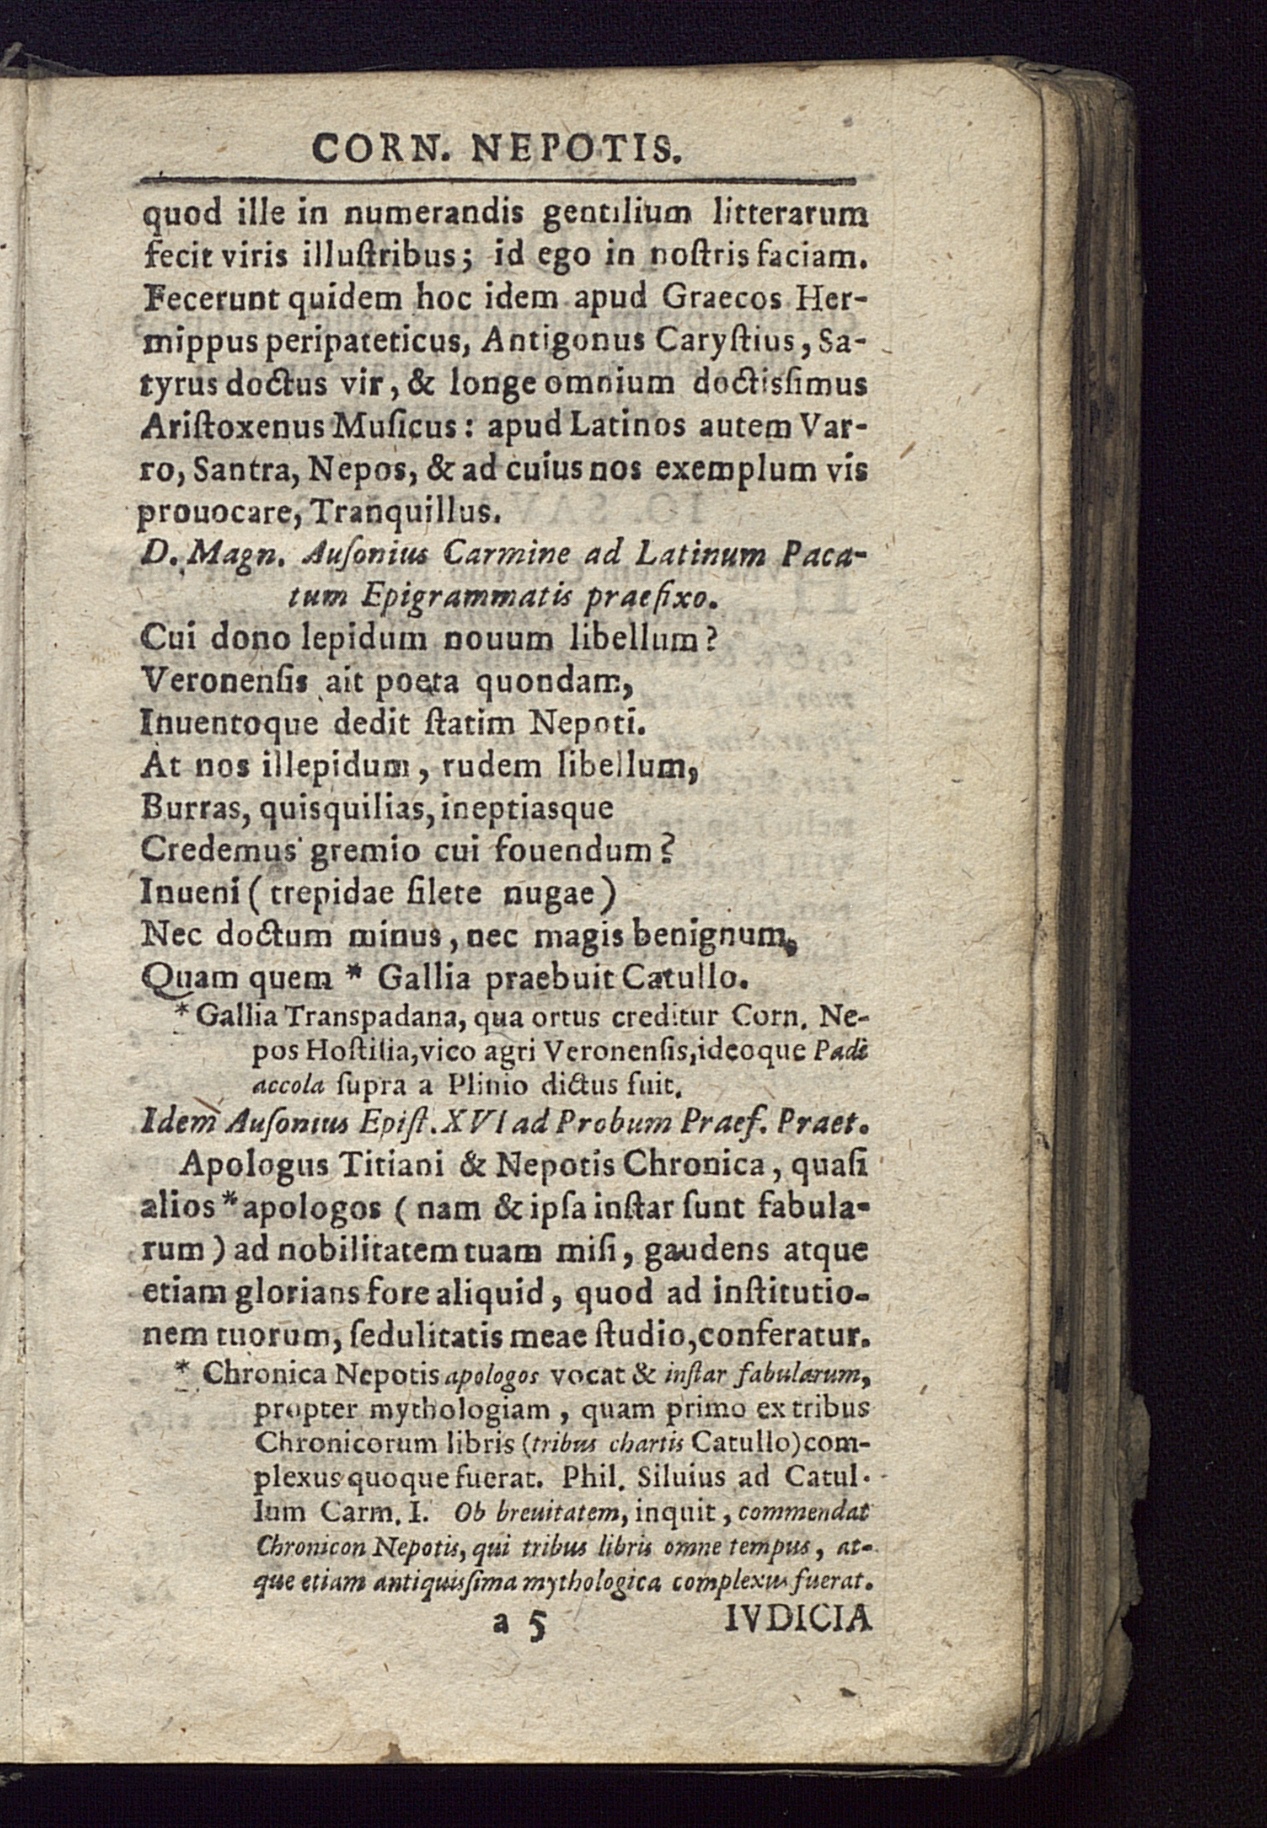 CORN. NEPOTIS.
quod ille in numerandis gentilium litterarum
fecit viris illuſtribus; id ego in noſtris faciam.
Fecerunt quidem hoc idem apud Graecos Her-
mippus peripateticus, Antigonus Caryſtius, Sa-
tyrus doctus vir, & longe omnium doctisſimus
Ariſtoxenus Muſicus: apud Latinos autem Var-
ro, Santra, Nepos, & ad cuius nos exemplum vis
prouocare, Tranquillus.
D. Magn. Auſonius Carmine ad Latinum Paca-
tum Epigrammatis praefixo.
Cui dono lepidum nouum libellum?
Veronenſis ait poeta quondam,
Inuentoque dedit ſtatim Nepoti.
At nos illepidum, rudem libellum,
Burras, quisquilias, ineptiasque
Credemus gremio cui fouendum?
Inueni (trepidae ſilete nugae)
Nec doctum minus, nec magis benignum,
Quam quem * Gallia praebuit Catullo.
* Gallia Transpadana, qua ortus creditur Corn. Ne-
pos Hoſtilia, vico agri Veronenſis, ideoque Padi
accola ſupra a Plinio dictus fuit.
Idem Auſonius Epiſt. XVI ad Probum Praef. Praet.
Apologus Titiani & Nepotis Chronica, quaſi
alios * apologos (nam & ipſa inſtar ſunt fabula-
rum) ad nobilitatem tuam miſi, gaudens atque
etiam glorians fore aliquid, quod ad inſtitutio-
nem tuorum, ſedulitatis meae ſtudio, conferatur.
* Chronica Nepotis apologos vocat & inſtar fabularum,
propter mythologiam, quam primo ex tribus
Chronicorum libris (tribus chartis Catullo) com-
plexus quoque fuerat. Phil. Siluius ad Catul-
lum Carm. I. Ob breuitatem, inquit, commendat
Chronicon Nepotis, qui tribus libris omne tempus, at-
que etiam antiquisſima mythologica complexus fuerat.
a 5 IVDICIA